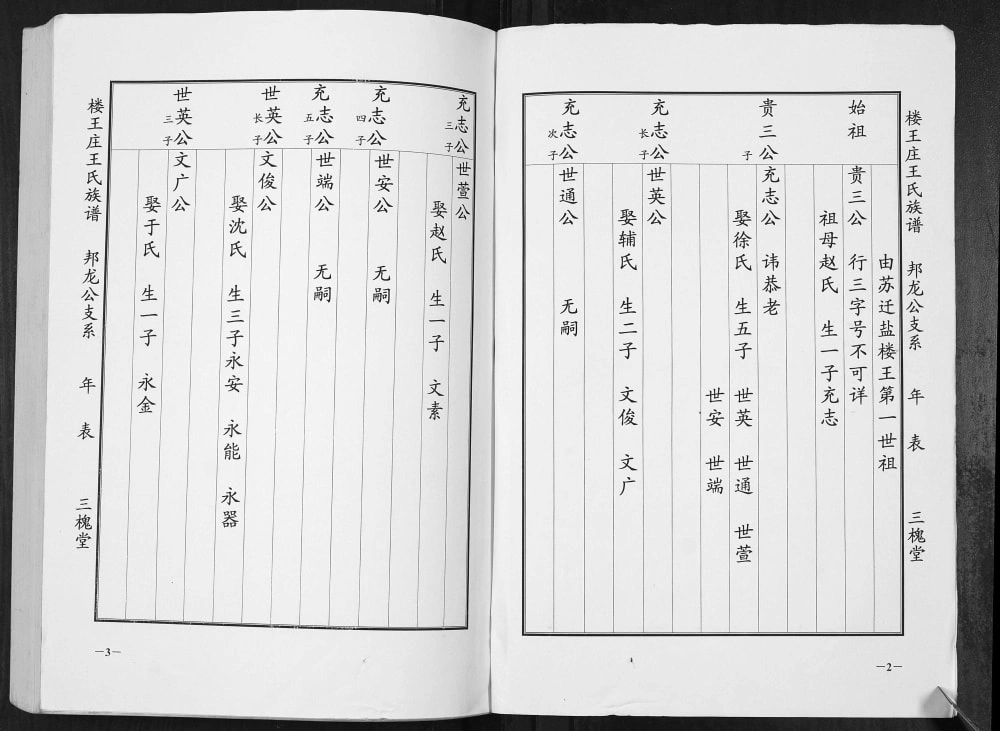 楼王庄王氏族谱 邦龙公支系 年表 三槐堂
始祖
由苏迁盐楼王第一世祖
贵三公 行三字号不可详
祖母赵氏 生一子充志
贵三公 子
充志公 讳恭老
娶徐氏 生五子 世英 世通 世萱
世安 世端
充志公 长子
世英公
娶辅氏 生二子 文俊 文广
充志公 次子
世通公 无嗣
—2—
充志公 三子
世萱公
娶赵氏 生一子 文素
充志公 四子
世安公 无嗣
充志公 五子
世端公 无嗣
世英公 长子
文俊公
娶沈氏 生三子永安 永能 永器
世英公 三子
文广公
娶于氏 生一子 永金
楼王庄王氏族谱 邦龙公支系 年表 三槐堂
—3—